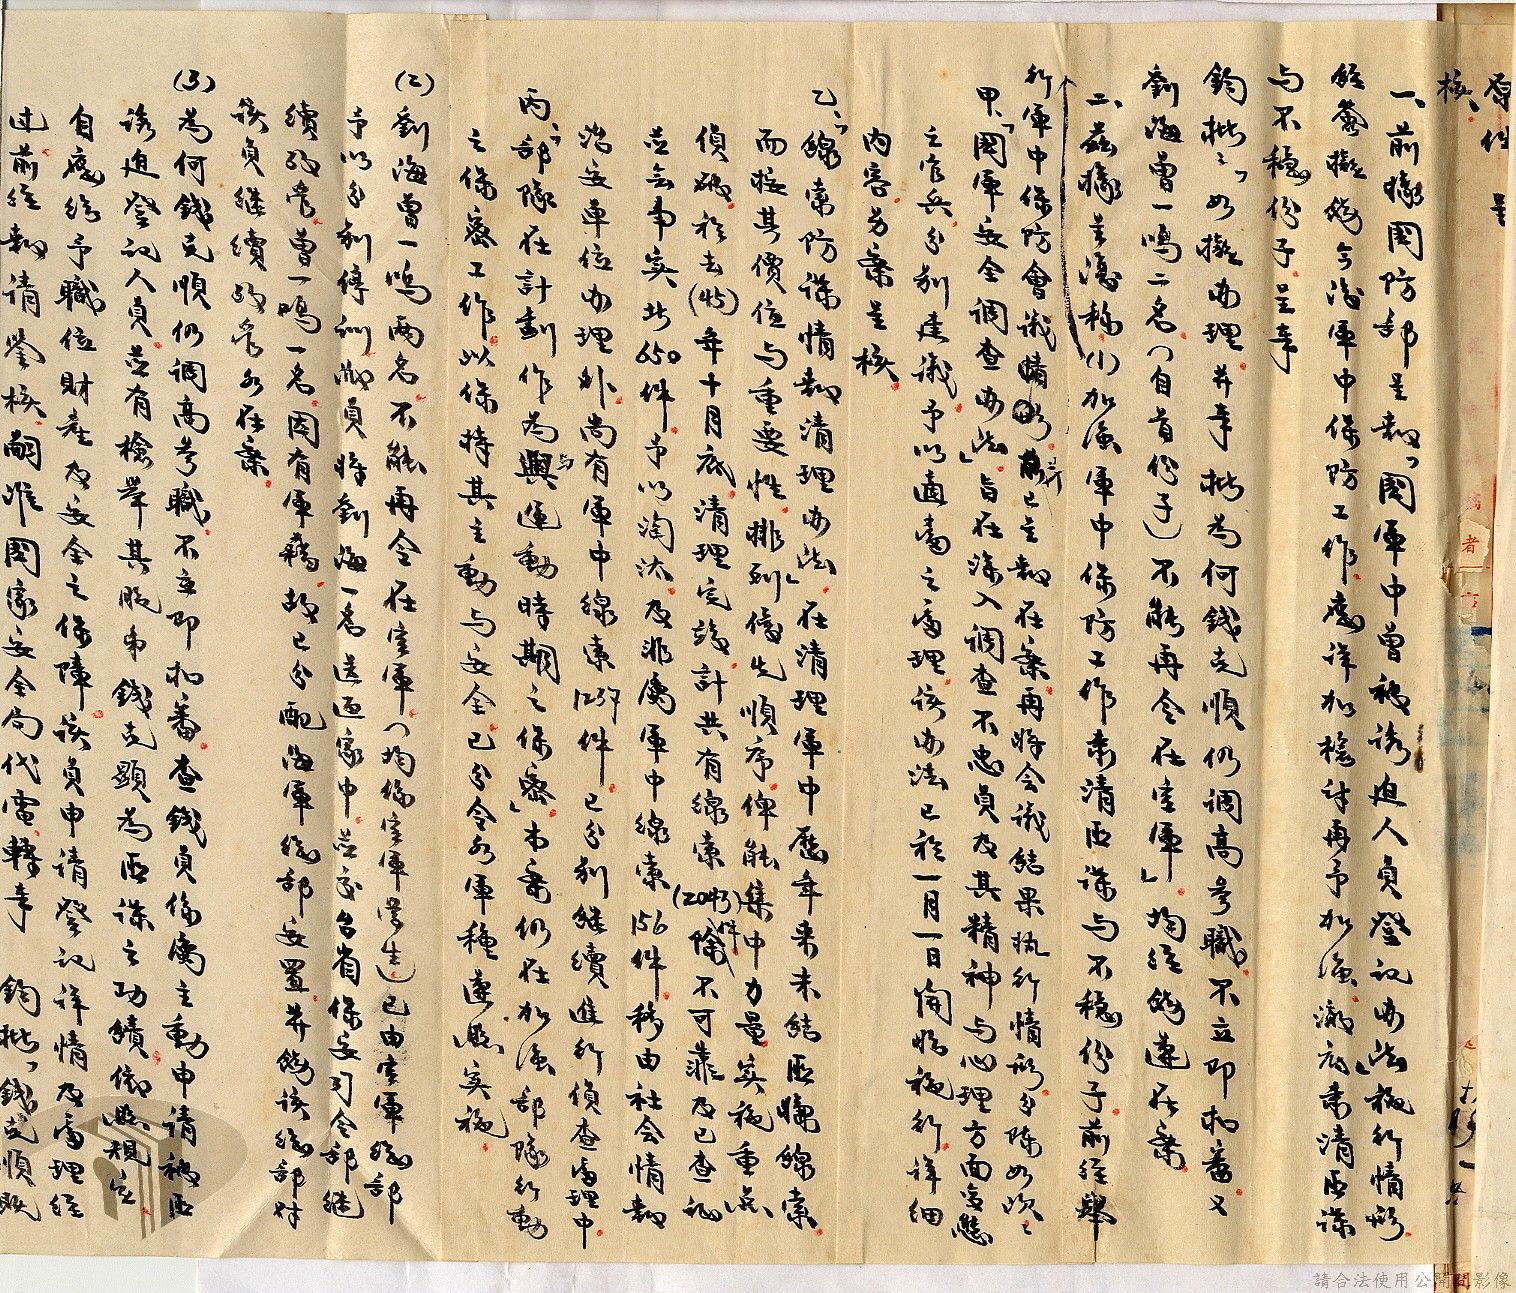 原件呈
核、
一、前據國防部呈報「國軍中曾被誘迫人員登記辦法」施行情形
經簽擬飭令海軍中保防工作應詳加檢討再予加強澈底肅清匪諜
与不穩份子呈奉
鈞批:「如擬辦理并奉批為何錢克順仍調高參職不立即扣審又
劉海曾一鳴二名(自首份子)不能再令在空軍」均經飭遵在案
二、茲據呈復稱(1)加強軍中保防工作肅清匪諜与不穩份子前經舉
行軍中保防會議情形前已呈報在案再將會議結果執行情形分陳如次:
甲、「國軍安全調查辦法」旨在深入調查不忠貞及其精神与心理方面變態
之官兵分別建議予以適當之處理該辦法已於一月一日開始施行詳細
內容另案呈核
乙、「線索防諜情報清理辦法」在清理軍中歷年來未結匪嫌線索
而按其價值与重要性排列優先順序俾能集中力量實施重點
偵破於去(45)年十月底清理完竣計共有線索(2043件)除不可靠及已查詢
並無事實者650件予以淘汰及非屬軍中線索156件移由社會情報
治安單位辦理外尚有軍中線索1237件已分別繼續進行偵查處理中
丙、「部隊在計劃作為與運動時期之保密」本案仍在加強部隊行動
之保密工作以保持其主動与安全已分令各軍種遵照實施
(2)劉海曾一鳴兩名不能再令在空軍(均係空軍學生)已由空軍總部
予以分別停訓職員將劉海一名送返家中並交台省保安司令部繼
續政管曾一鳴一名因有軍籍故已分配海軍總部安置并飭該總部對
該員繼續政管各在案
(3)為何錢克順仍調高參職不立即扣審查錢員係屬主動申請被匪
誘迫登記人員並有檢舉其胞弟錢克顯為匪諜之功績依照規定
自應給予職位財產及安全之保障該員申請登記詳情及處理經
过前經報請鑒核嗣准國家安全局代電轉奉鈞批「錢克順既
請合法使用公開影像